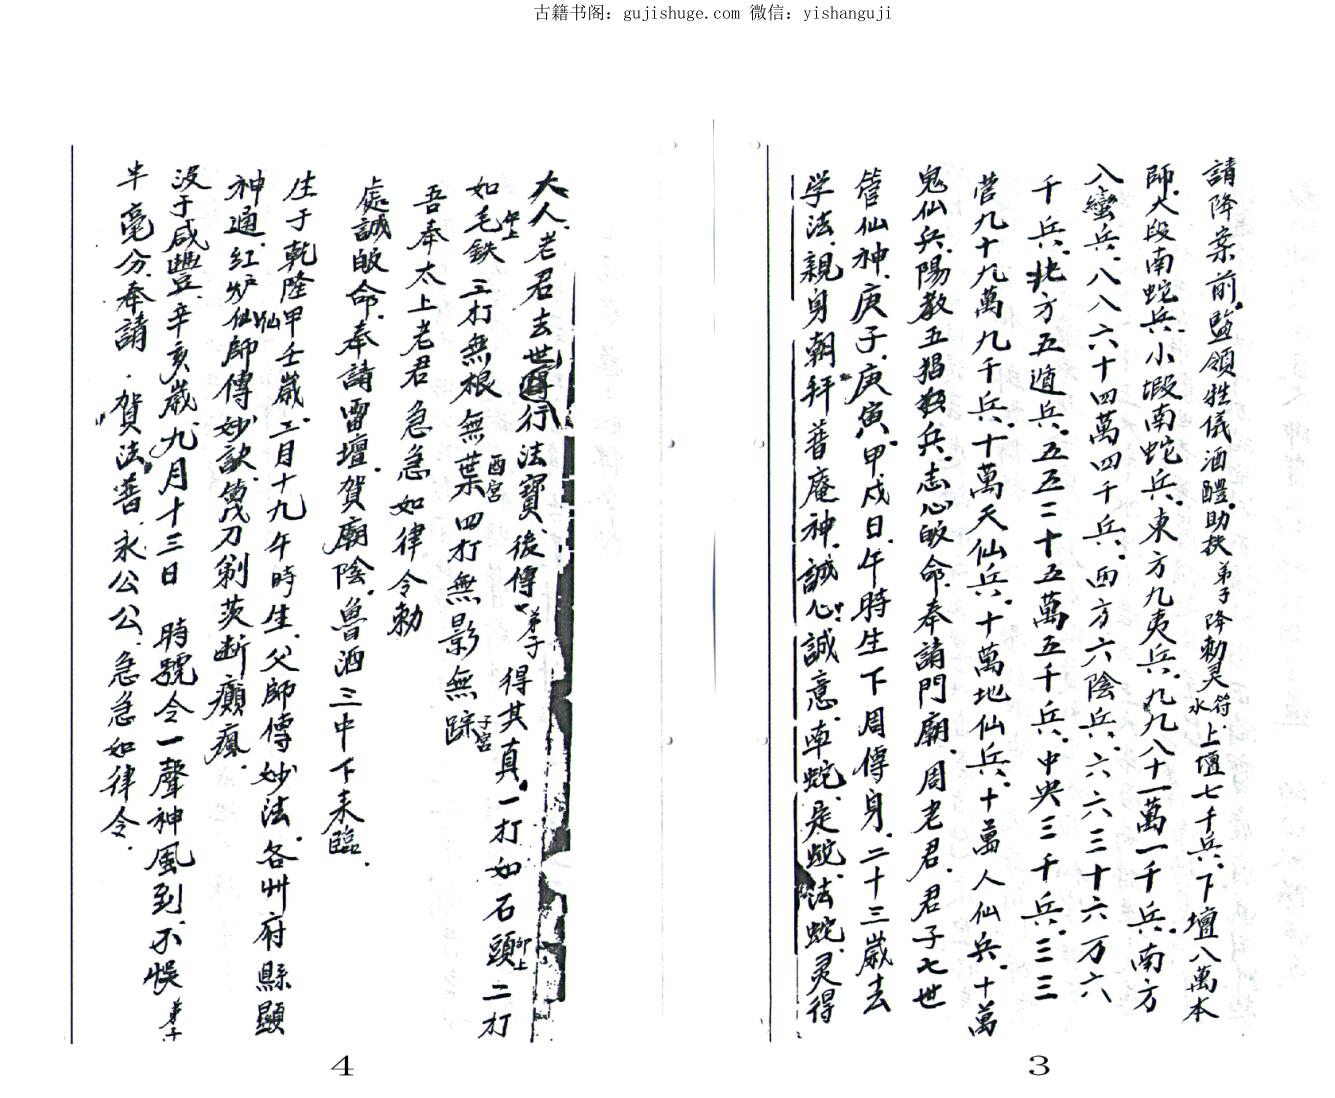 古籍书阁：gujishuge.com 微信：yishanguji
請降案前。監領牲儀酒醴。助扶弟子降勅灵符水上壇七千兵。下壇八萬本
師。大段南蛇兵。小塅南蛇兵。東方九夷兵。九九八十一萬一千兵。南方
八蠻兵。八八六十四萬四千兵。西方六陰兵。六六三十六万六
千兵。北方五遁兵。五五二十五萬五千兵。中央三千兵。三三
營九十九萬九千兵。十萬天仙兵。十萬地仙兵。十萬人仙兵。十萬
鬼仙兵。陽教五猖兵。志心皈命。奉請門廟。周老君。君子七世
管仙神。庚子。庚寅。甲戍日。午時生下周傳身。二十三歲去
学法。親身朝拜普庵神。誠心誠意。車蛇。是蛇。法蛇。灵得
大人。老君去世行法寶。後傳弟子得其真。一打如石頭卯上二打
如毛鉄午上三打無根無葉酉宮四打無影無踪子宮
吾奉太上老君急急如律令勅
處誠皈命。奉請雷壇。賀廟陰。魯酒三中下来臨。
生于乾隆甲壬歲。二月十九午時生。父師傳妙法。各州府縣顯
神通。紅炉仙師傳妙訣。刀剁茨断癲瘋。
沒于咸豐。辛亥歲。九月十三日 時號令一聲神風到。不悞弟子
半毫分。奉請。賀法普。永公公。急急如律令。
4
3